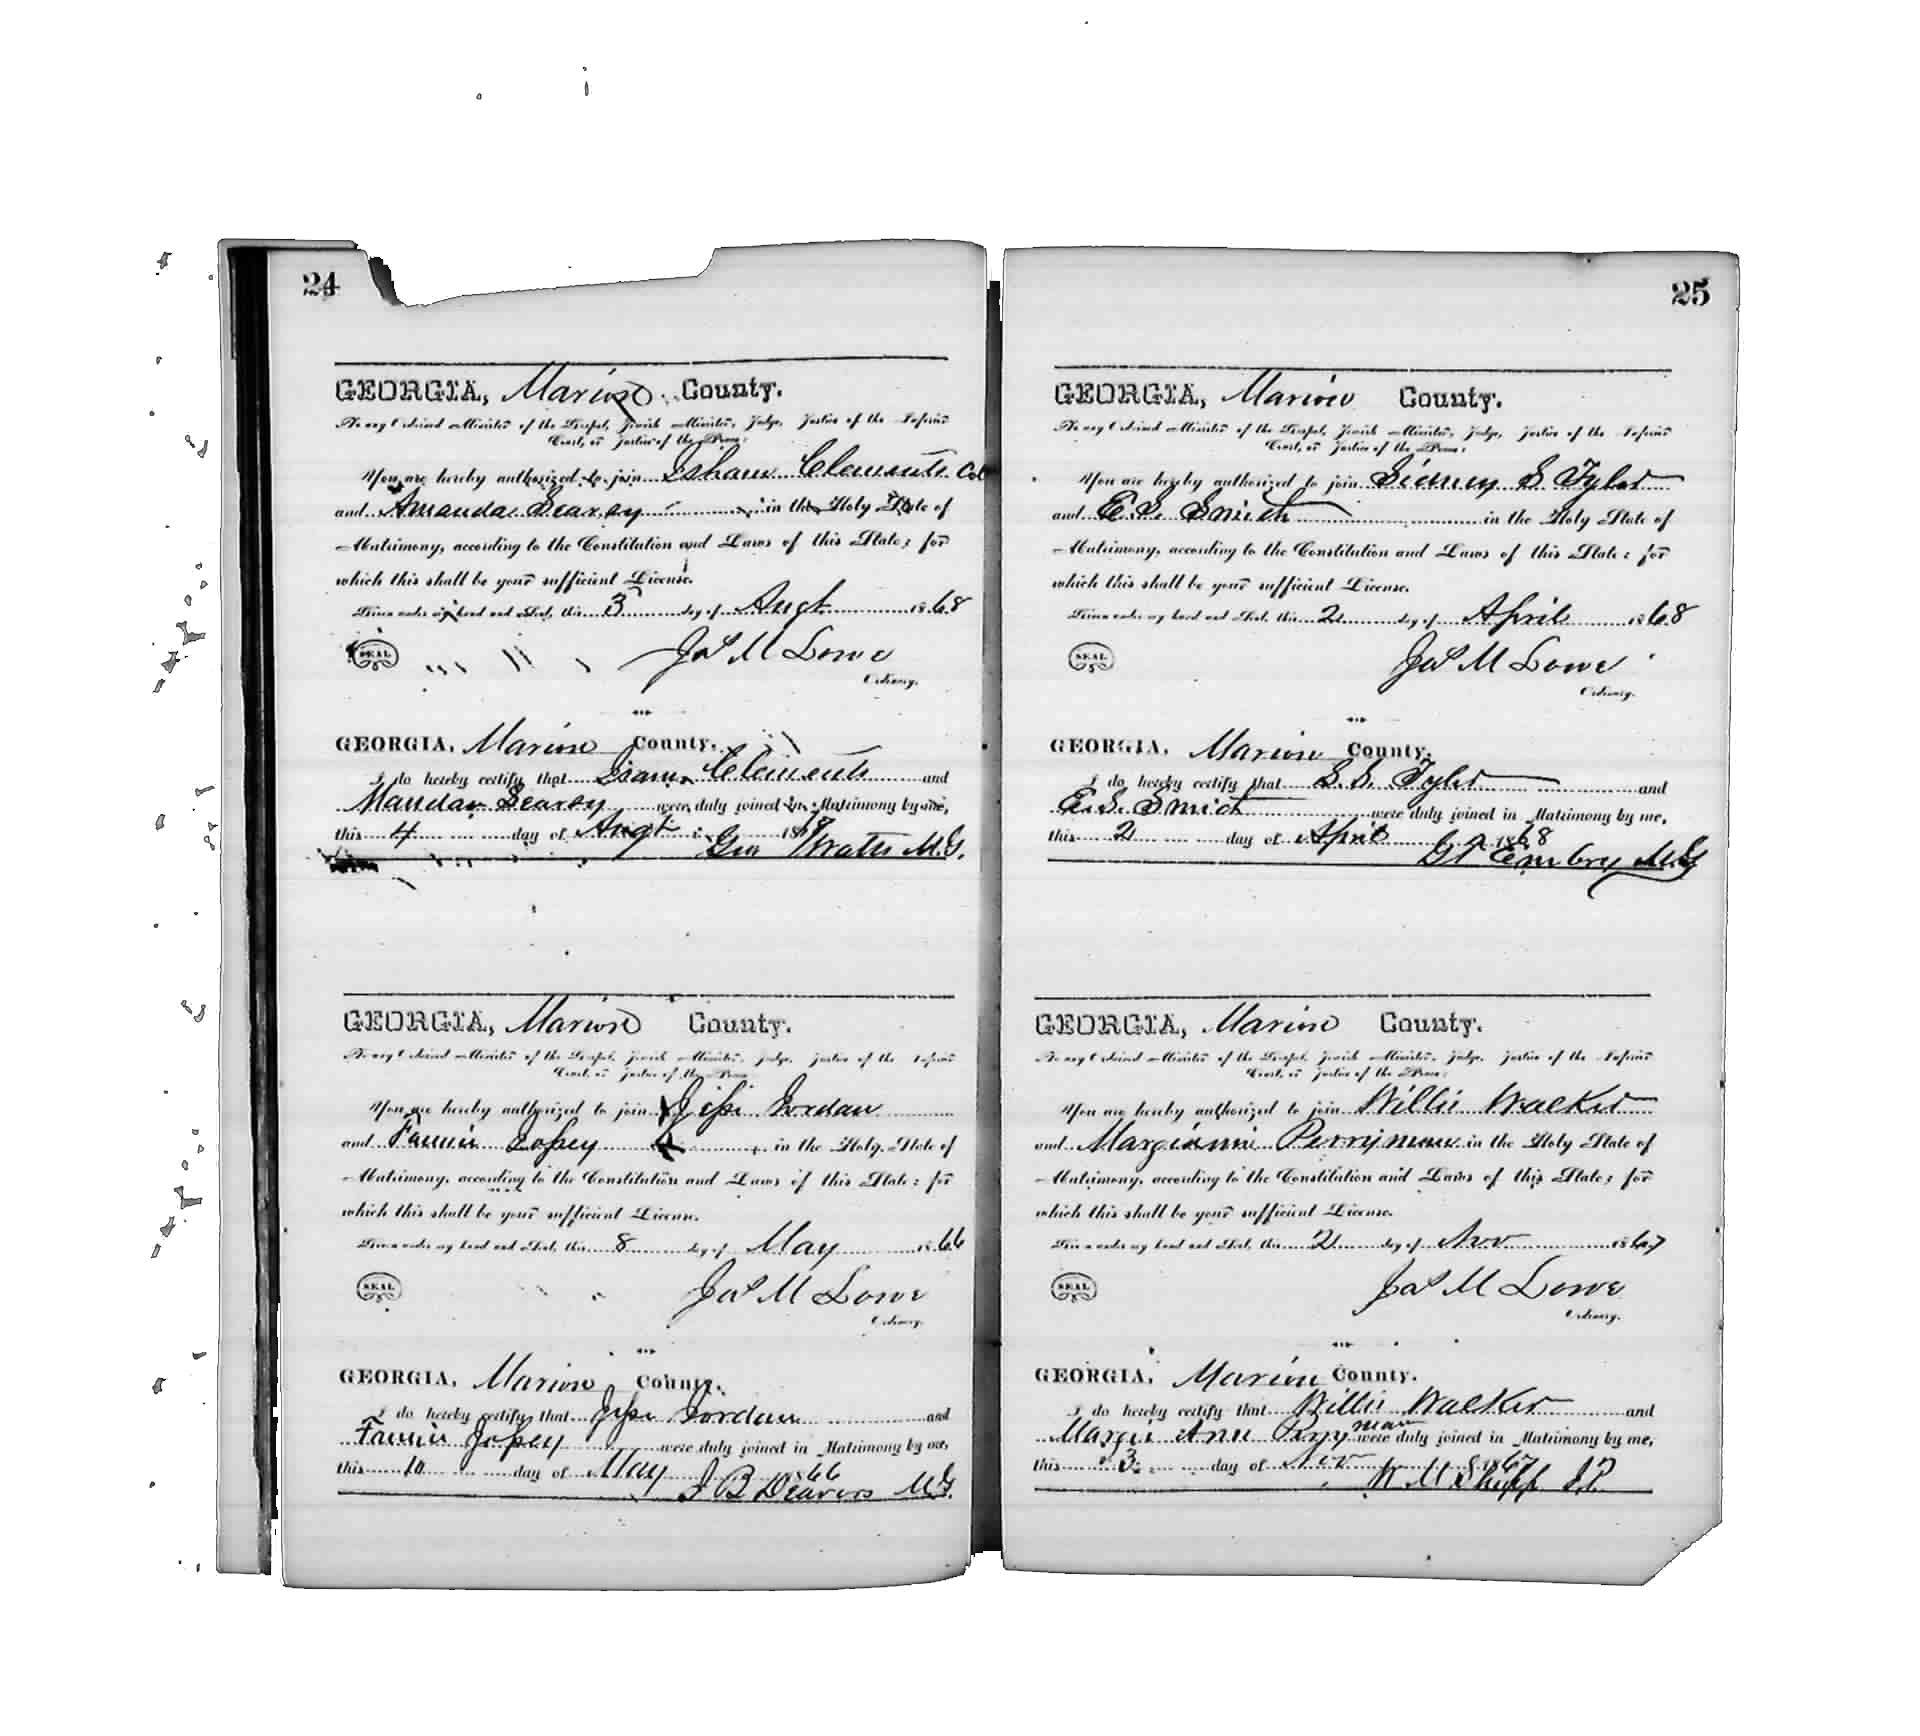 24
GEORGIA, Marion County.
To any Ordained Minister of the Gospel, Jewish Minister, Judge, Justice of the Inferior
Court, or Justice of the Peace:
You are hereby authorized to join Isham Clements Col
and Amanda Searcy in the Holy State of
Matrimony, according to the Constitution and Laws of this State; for
which this shall be your sufficient License.
Given under my hand and Seal, this 3 day of Augt 1868
SEAL
Jas M Lowe
Ordinary.
GEORGIA, Marion County.
I do hereby certify that Isam Clements and
Mandar Searcy were duly joined in Matrimony by me,
this 4 day of Augt 18
Geo Watts M.G.
GEORGIA, Marion County.
To any Ordained Minister of the Gospel, Jewish Minister, Judge, Justice of the Inferior
Court, or Justice of the Peace
You are hereby authorized to join Jesse Jordan
and Fannie Jossey in the Holy State of
Matrimony, according to the Constitution and Laws of this State: for
which this shall be your sufficient License.
Given under my hand and Seal, this 8 day of May 1866
SEAL
Jas M Lowe
Ordinary.
GEORGIA, Marion County.
I do hereby certify that Jesse Jordan and
Fannie Jossey were duly joined in Matrimony by me,
this 10 day of May 1866
J B Deavors M.G.
25
GEORGIA, Marion County.
To any Ordained Minister of the Gospel, Jewish Minister, Judge, Justice of the Inferior
Court, or Justice of the Peace:
You are hereby authorized to join Sidney S Tyler
and E. S. Smith in the Holy State of
Matrimony, according to the Constitution and Laws of this State: for
which this shall be your sufficient License.
Given under my hand and Seal, this 2 day of April 1868
SEAL
Jas M Lowe
Ordinary.
GEORGIA, Marion County.
I do hereby certify that S. S. Tyler and
E. S. Smith were duly joined in Matrimony by me,
this 2 day of April 1868
Embry M.G.
GEORGIA, Marion County.
To any Ordained Minister of the Gospel, Jewish Minister, Judge, Justice of the Inferior
Court, or Justice of the Peace:
You are hereby authorized to join Willis Walker
and Margiannie Perryman in the Holy State of
Matrimony, according to the Constitution and Laws of this State; for
which this shall be your sufficient License.
Given under my hand and Seal, this 2 day of Nov 1867
SEAL
Jas M Lowe
Ordinary.
GEORGIA, Marion County.
I do hereby certify that Willis Walker and
Margie Ann Perryman were duly joined in Matrimony by me,
this 3 day of Nov 1867
W M Shipp J.P.